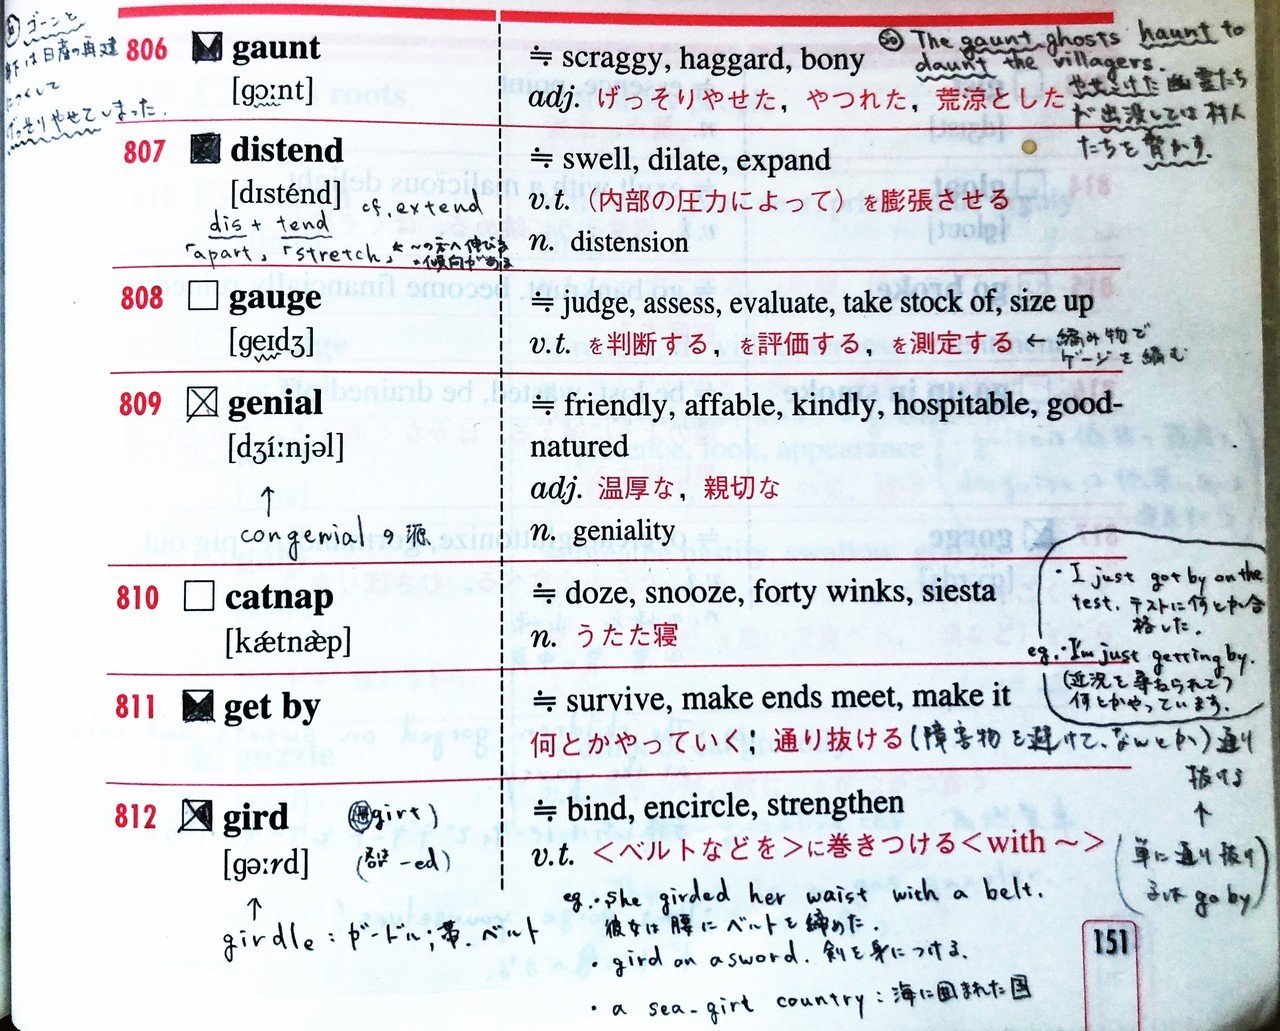 ゴーンと
は日産の再建
げっそりやせてしまった.
806 gaunt
[gɔːnt]
≒ scraggy, haggard, bony
adj. げっそりやせた，やつれた，荒涼とした
The gaunt ghosts haunt to
daunt the villagers.
幽霊たち
が出没しては村人
たちを脅かす.
807 distend
[dɪsténd]
cf. extend
dis + tend
「apart」「stretch」
≒ swell, dilate, expand
v.t. （内部の圧力によって）を膨張させる
n. distension
808 gauge
[geɪdʒ]
≒ judge, assess, evaluate, take stock of, size up
v.t. を判断する，を評価する，を測定する ← 編み物で
ゲージを編む
809 genial
[dʒíːnjəl]
↑
congenial の源
≒ friendly, affable, kindly, hospitable, good-
natured
adj. 温厚な，親切な
n. geniality
810 catnap
[kǽtnæ̀p]
≒ doze, snooze, forty winks, siesta
n. うたた寝
・I just got by on the
test. テストに何とか合
格した.
eg.・I'm just getting by.
(近況を尋ねられて)
何とかやっています.
811 get by
≒ survive, make ends meet, make it
何とかやっていく；通り抜ける (障害物を避けて、なんとか) 通り
抜ける
↑
(単に通り抜け
るは go by)
812 gird (girt)
[gəːrd] (-ed)
↑
girdle : ガードル；帯、ベルト
≒ bind, encircle, strengthen
v.t. ＜ベルトなどを＞に巻きつける＜with ～＞
eg.・She girded her waist with a belt.
彼女は腰にベルトを締めた.
・gird on a sword. 剣を身につける.
・a sea-girt country : 海に囲まれた国
151